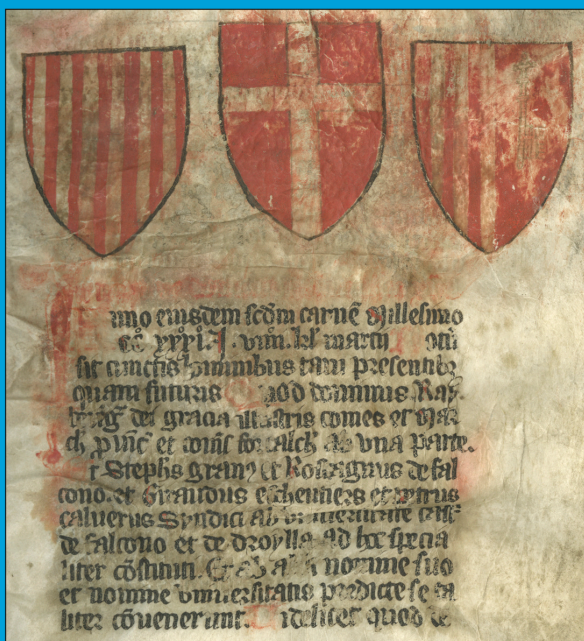 nno eiusdem scdm carnē Millesimo
cc xxxi. viiii. kl marcii
sit cunctis hominibus tam presentibz
quam futuris Quod dominus Ray
dei gracia illustris comes et Mar
ch pvinc et comes forcalch Ab una parte.
t Stephs grany et Rostagnus de fal
cono. et Giraudus et petrus
caluerus Syndici Ab universitate
de falcono et de droylla Ad hoc specia
liter cōstituti. nomine suo
et nomine universitatis predicte se ta
liter cōvenerunt. idelicet quod